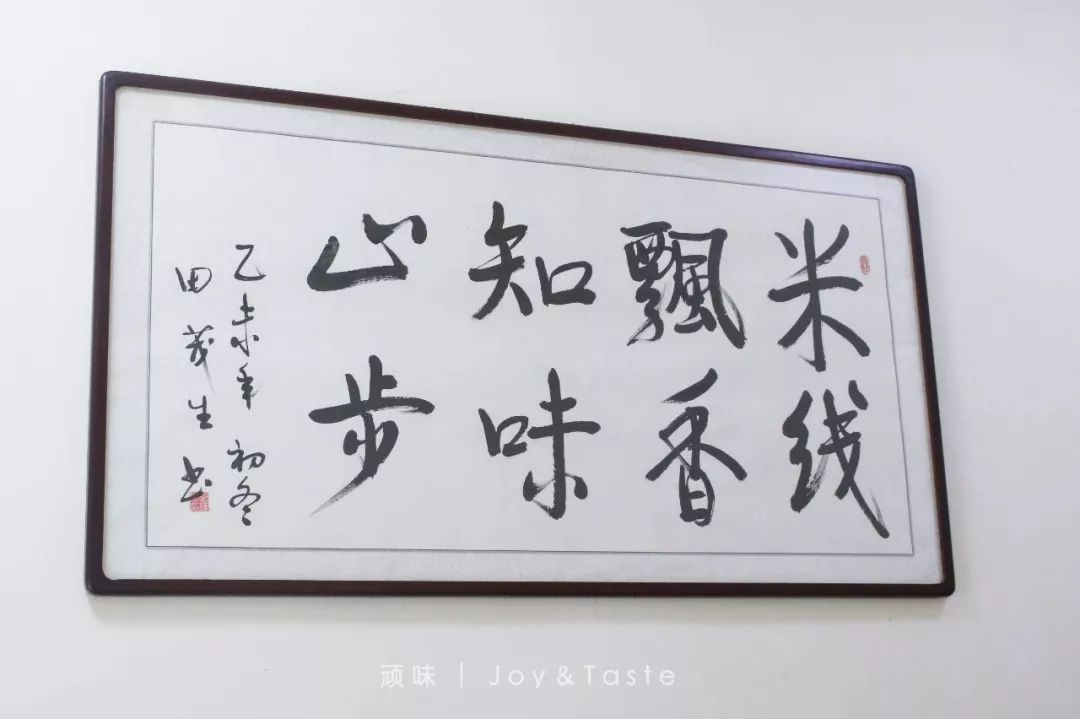 米线
飄香
知味
止步
乙未年初冬
田茂生书
顽味 | Joy&Taste